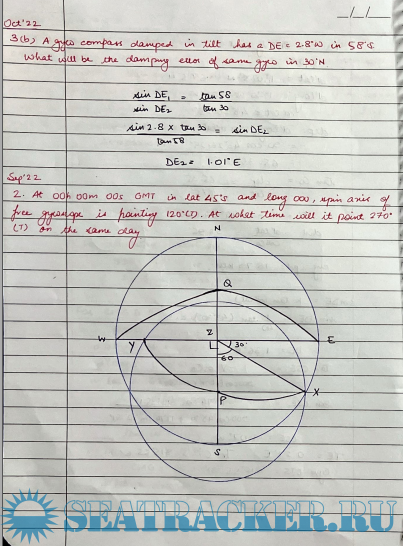 _/_/_
Oct'22
3(b) A gyro compass damped in tilt has a DE = 2.8°W in 58°S
What will be the damping error of same gyro in 30°N
sin DE₁ = tan 58
sin DE₂ tan 30
sin 2.8 x tan 30 = sin DE₂
tan 58
DE₂ = 1.01°E
Sep'22
2. At 00h 00m 00s GMT in lat 45°S and long 000, spin axis of
free gyroscope is pointing 120°(T). At what time will it point 270°
(T) on the same day.
N
Q
W Y Z 30° E
60
P X
S
SEATRACKER.RU